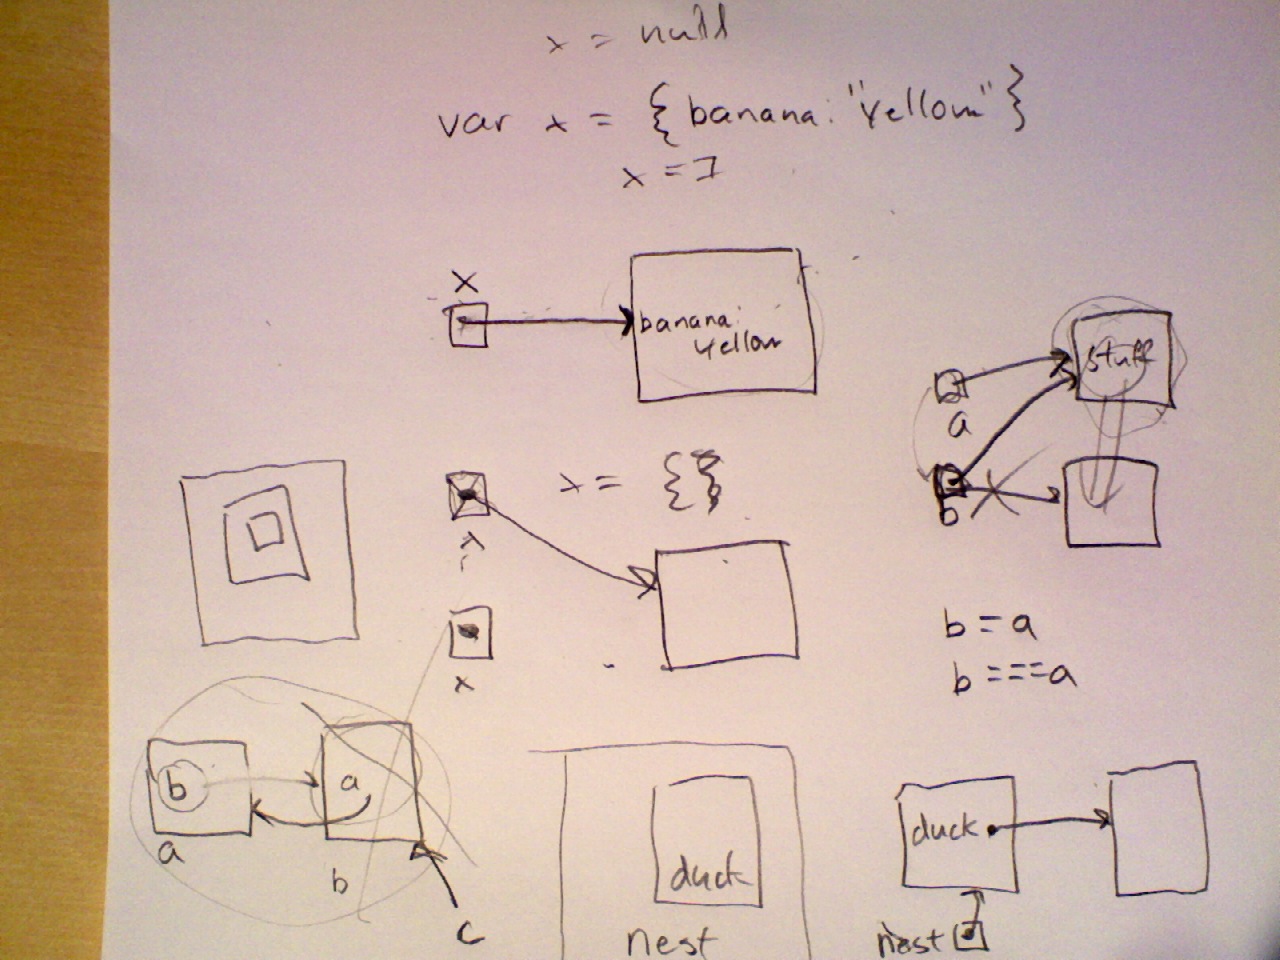 x = null
var x = { banana: "Yellow" }
x = 7
x
banana:
Yellow
stuff
a
b
x = {}
x
x
b = a
b === a
b
a
a
b
c
duck
nest
duck
nest